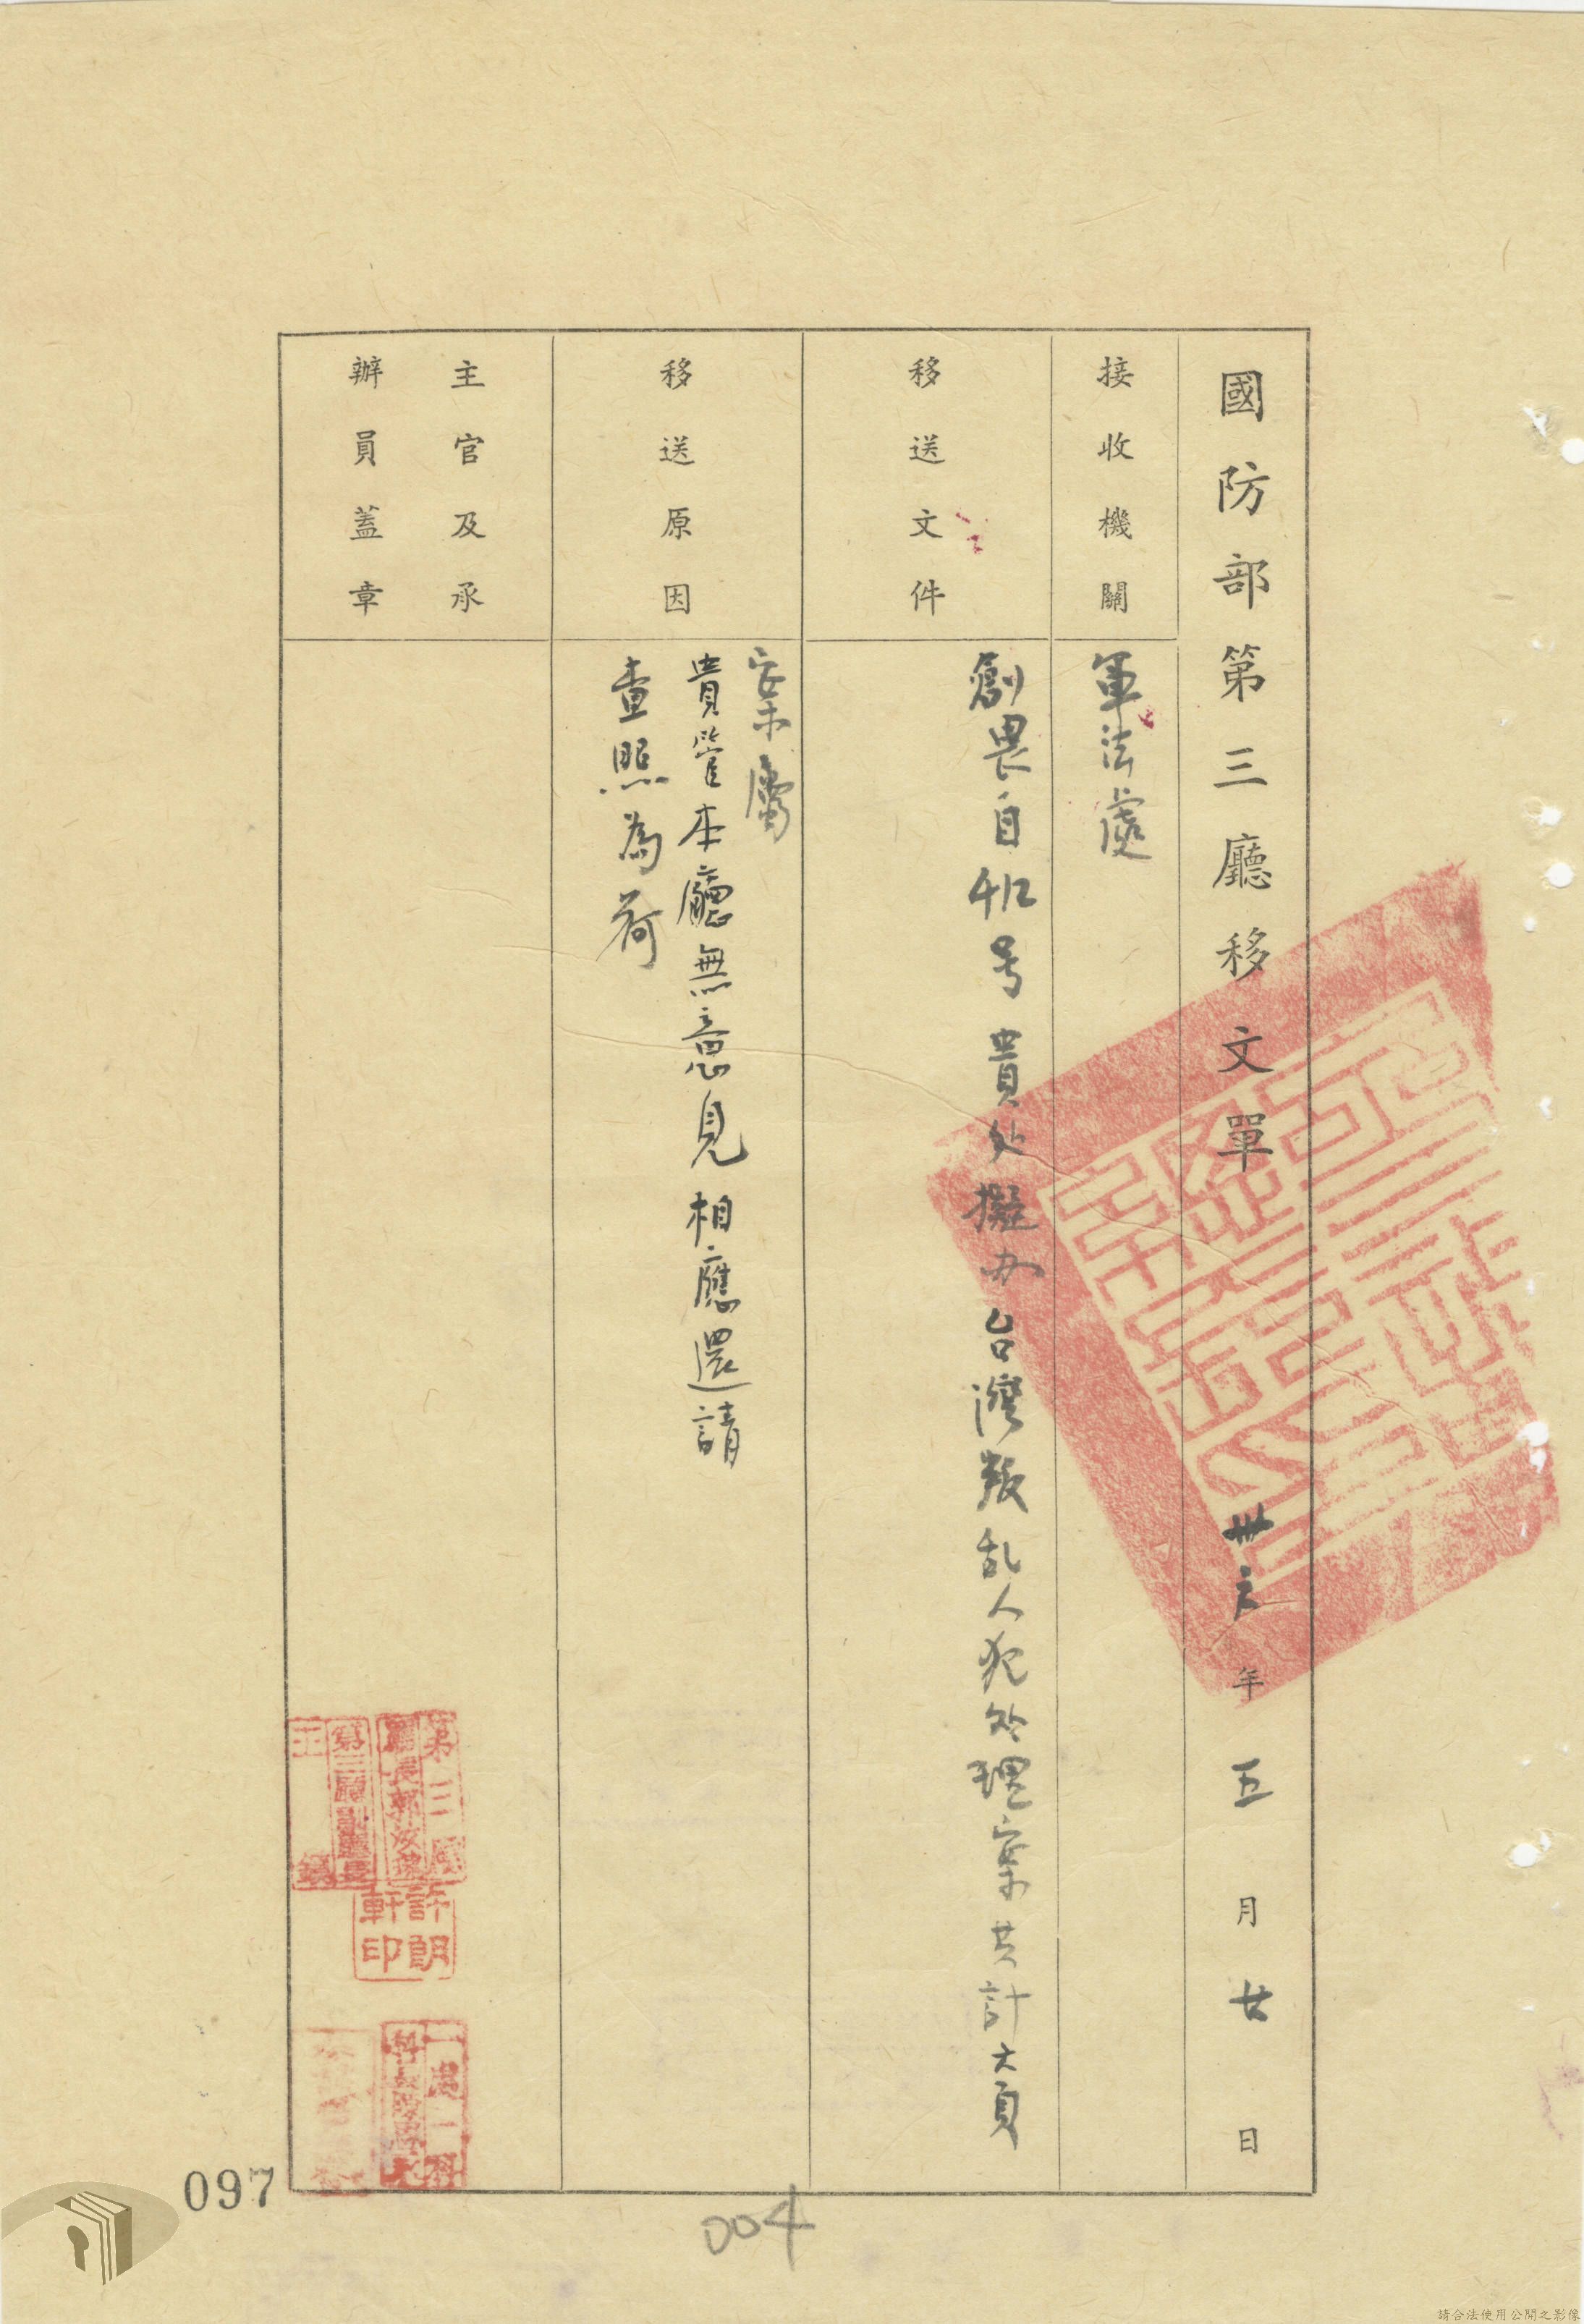 國防部第三廳移文單 卅六年五月廿日
接收機關
軍法處
移送文件
創畏自412号貴处擬办台灣叛乱人犯处理案共計六頁
移送原因
案屬
貴管本廳無意見相應還請
查照為荷
主官及承
辦員蓋章
第三廳
廳長郭汝瑰
第三廳副廳長
王鎮
許朗
軒印
一處一科
097
004
請合法使用公開之影像